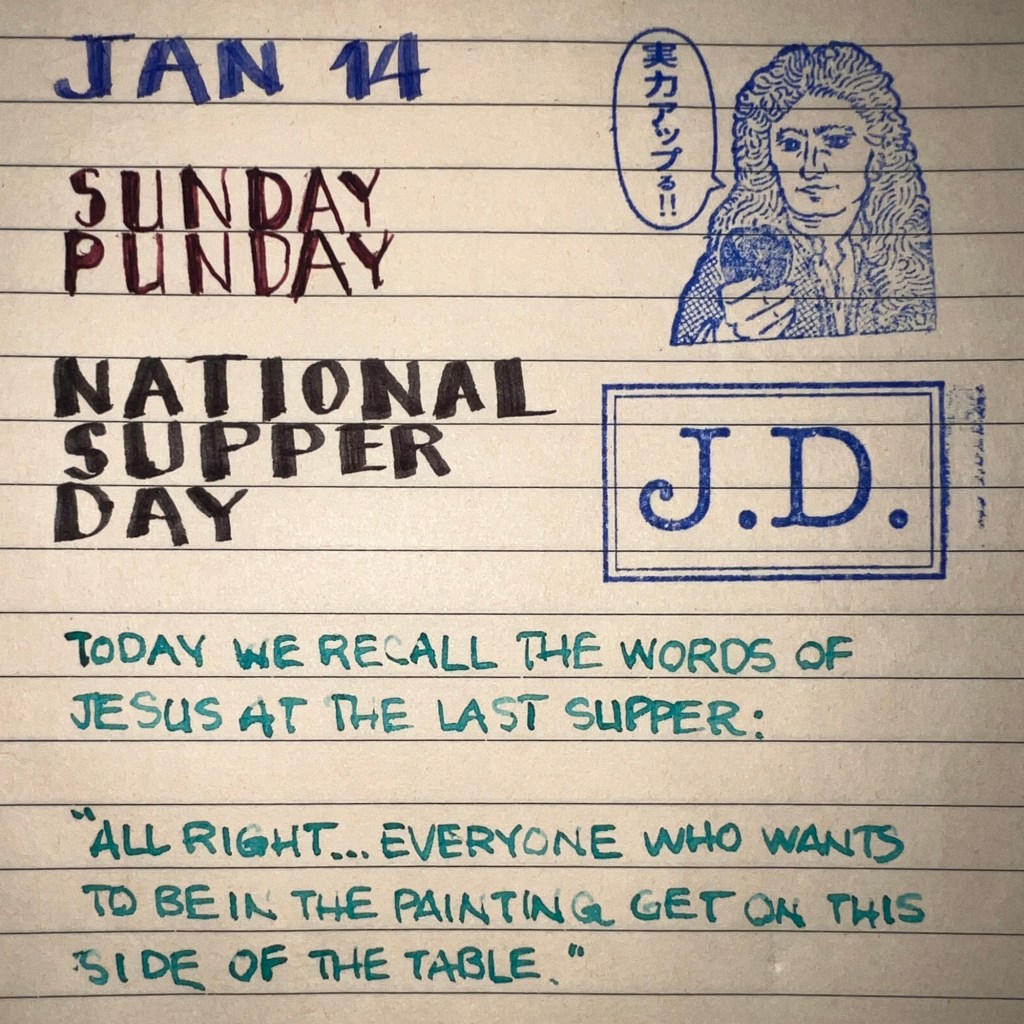 JAN 14
SUNDAY
PUNDAY
実力アップる!!
NATIONAL
SUPPER
DAY
J.D.
TODAY WE RECALL THE WORDS OF
JESUS AT THE LAST SUPPER:
"ALL RIGHT... EVERYONE WHO WANTS
TO BE IN THE PAINTING GET ON THIS
SIDE OF THE TABLE."